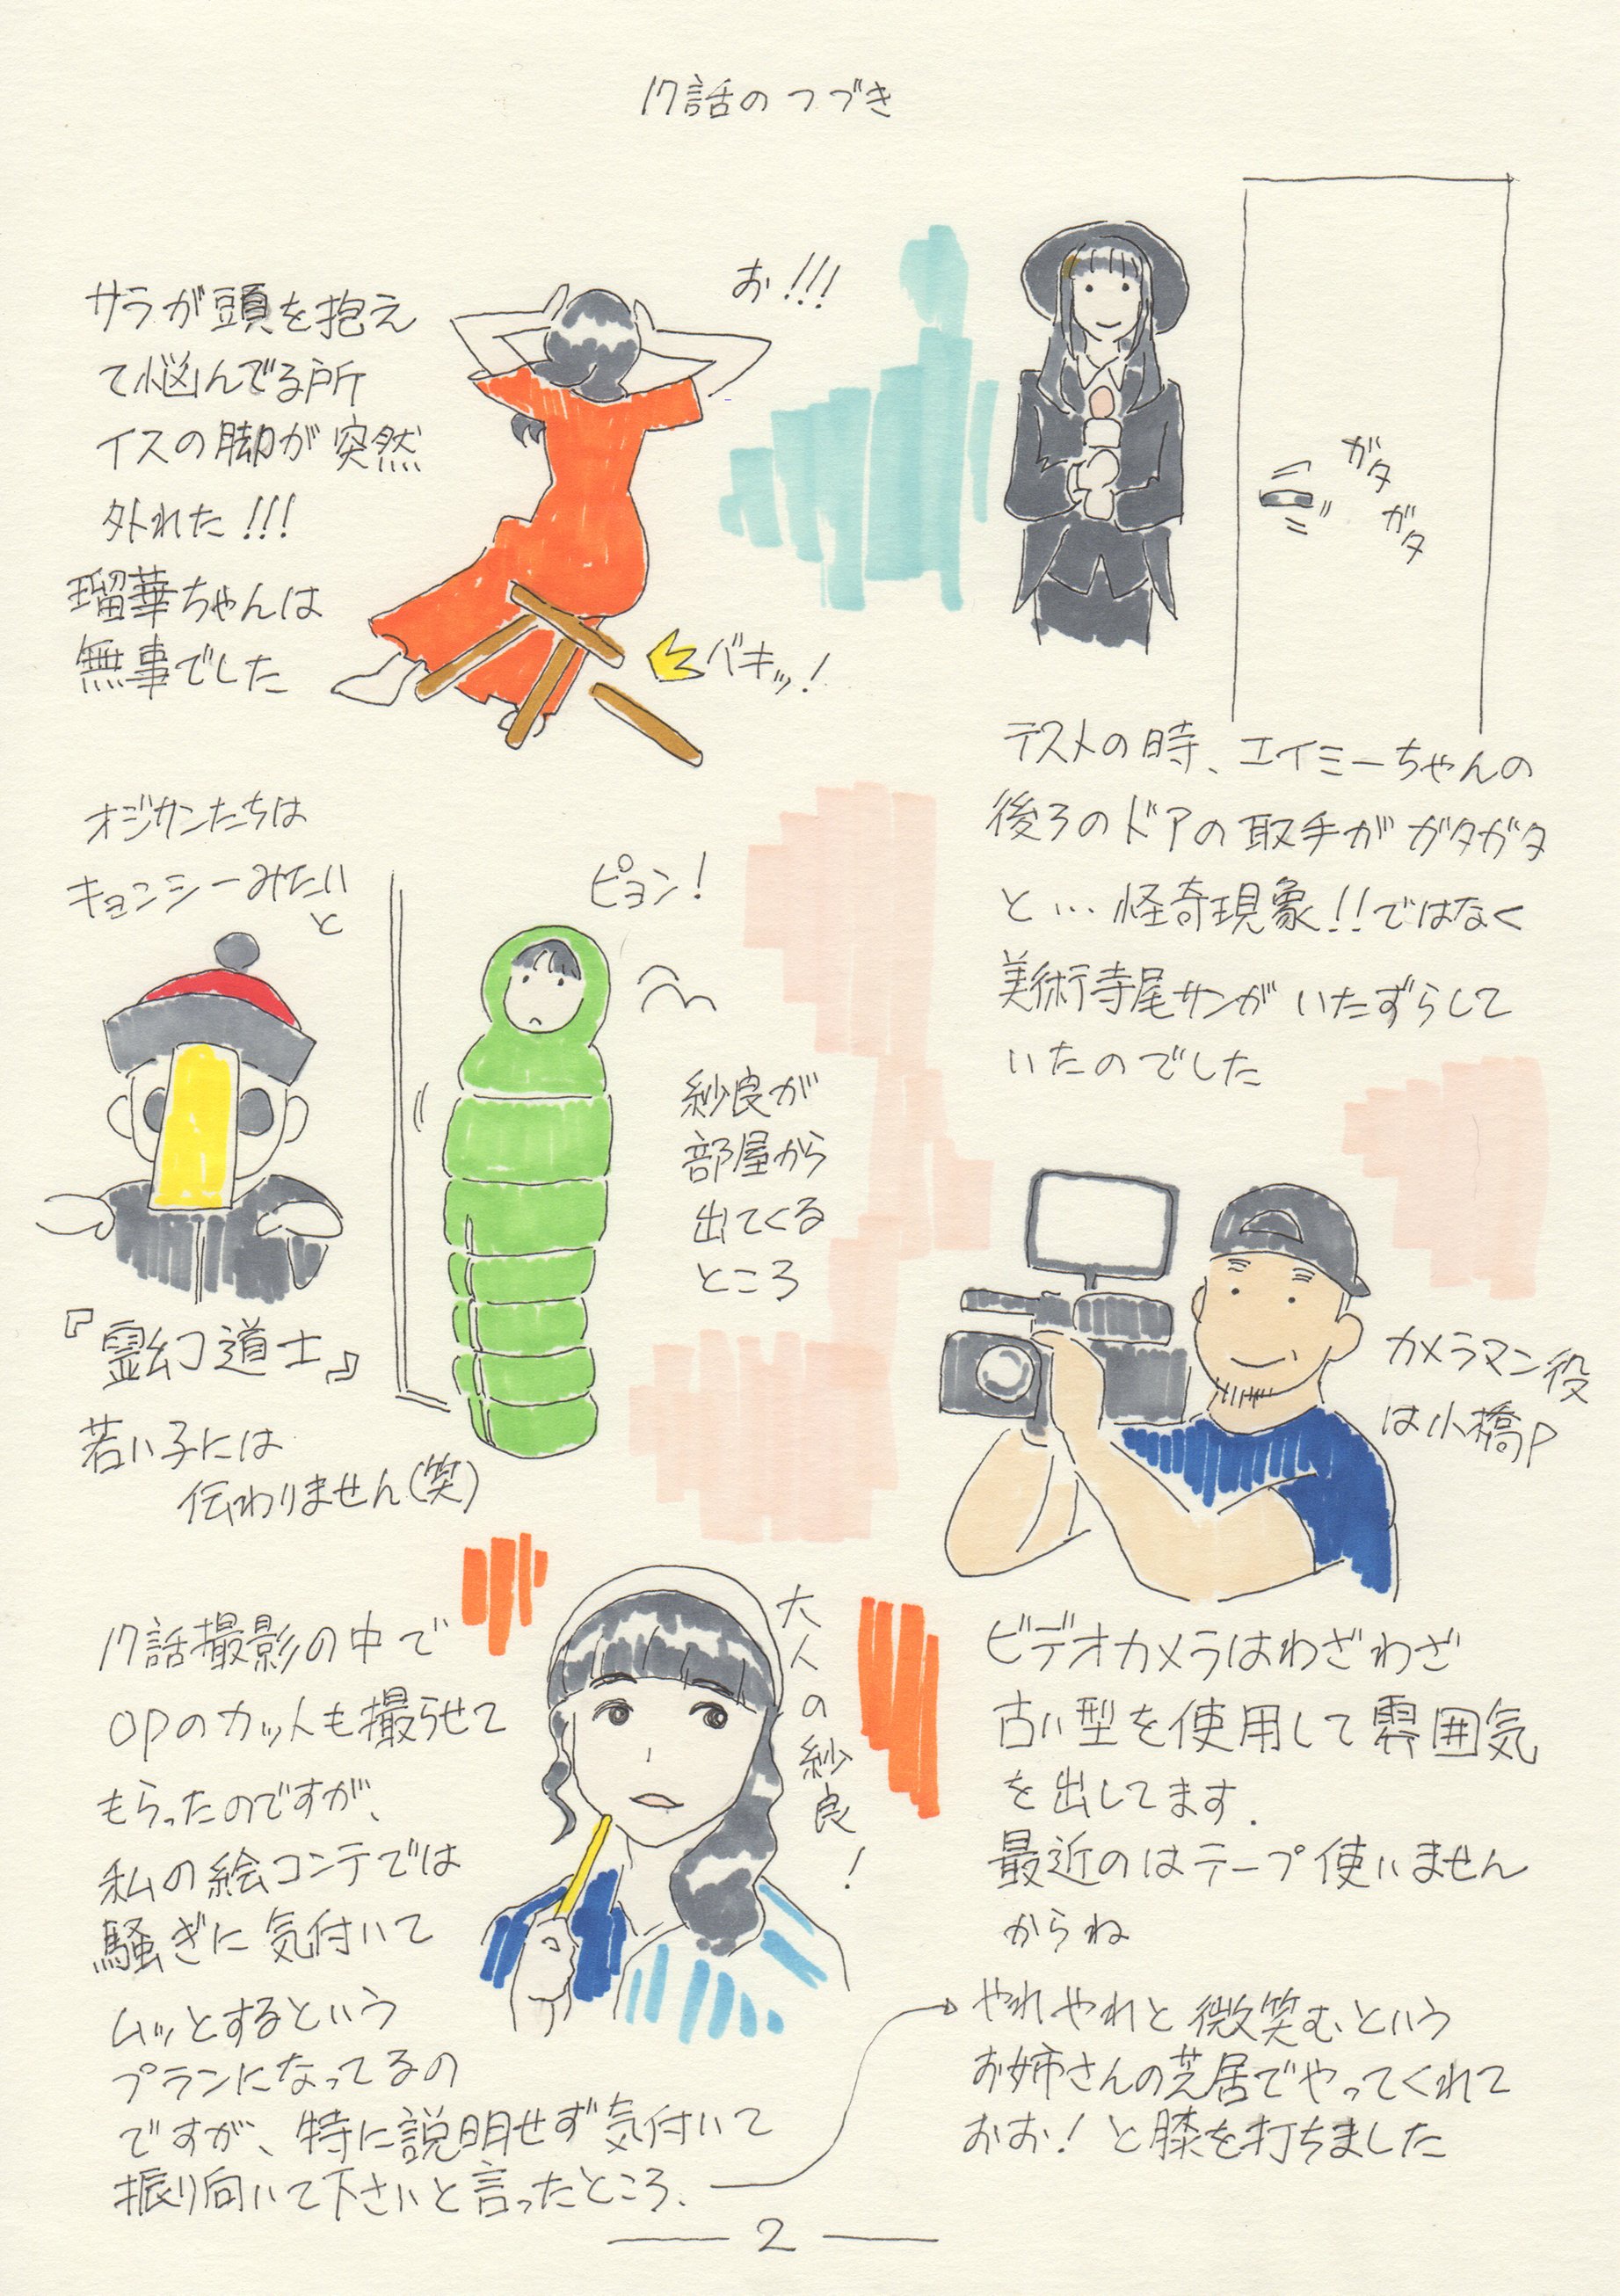 17話のつづき
サラが頭を抱え
て悩んでる所
イスの脚が突然
外れた!!!
瑠華ちゃんは
無事でした
お!!!
バキッ!
ガタ
ガタ
テストの時、エイミーちゃんの
後ろのドアの取手がガタガタ
と…怪奇現象!!ではなく
美術寺尾サンがいたずらして
いたのでした
オジサンたちは
キョンシーみたい
と
『霊幻道士』
若い子には
伝わりません(笑)
ピョン!
紗良が
部屋から
出てくる
ところ
カメラマン役
は小橋P
ビデオカメラはわざわざ
古い型を使用して雰囲気
を出してます.
最近のはテープ使いません
からね
17話撮影の中で
OPのカットも撮らせて
もらったのですが、
私の絵コンテでは
騒ぎに気付いて
ムッとするという
プランになってるの
ですが、特に説明せず気付いて
振り向いて下さいと言ったところ、
大人の紗良!
やれやれと微笑むという
お姉さんの芝居でやってくれて
おお!と膝を打ちました
2